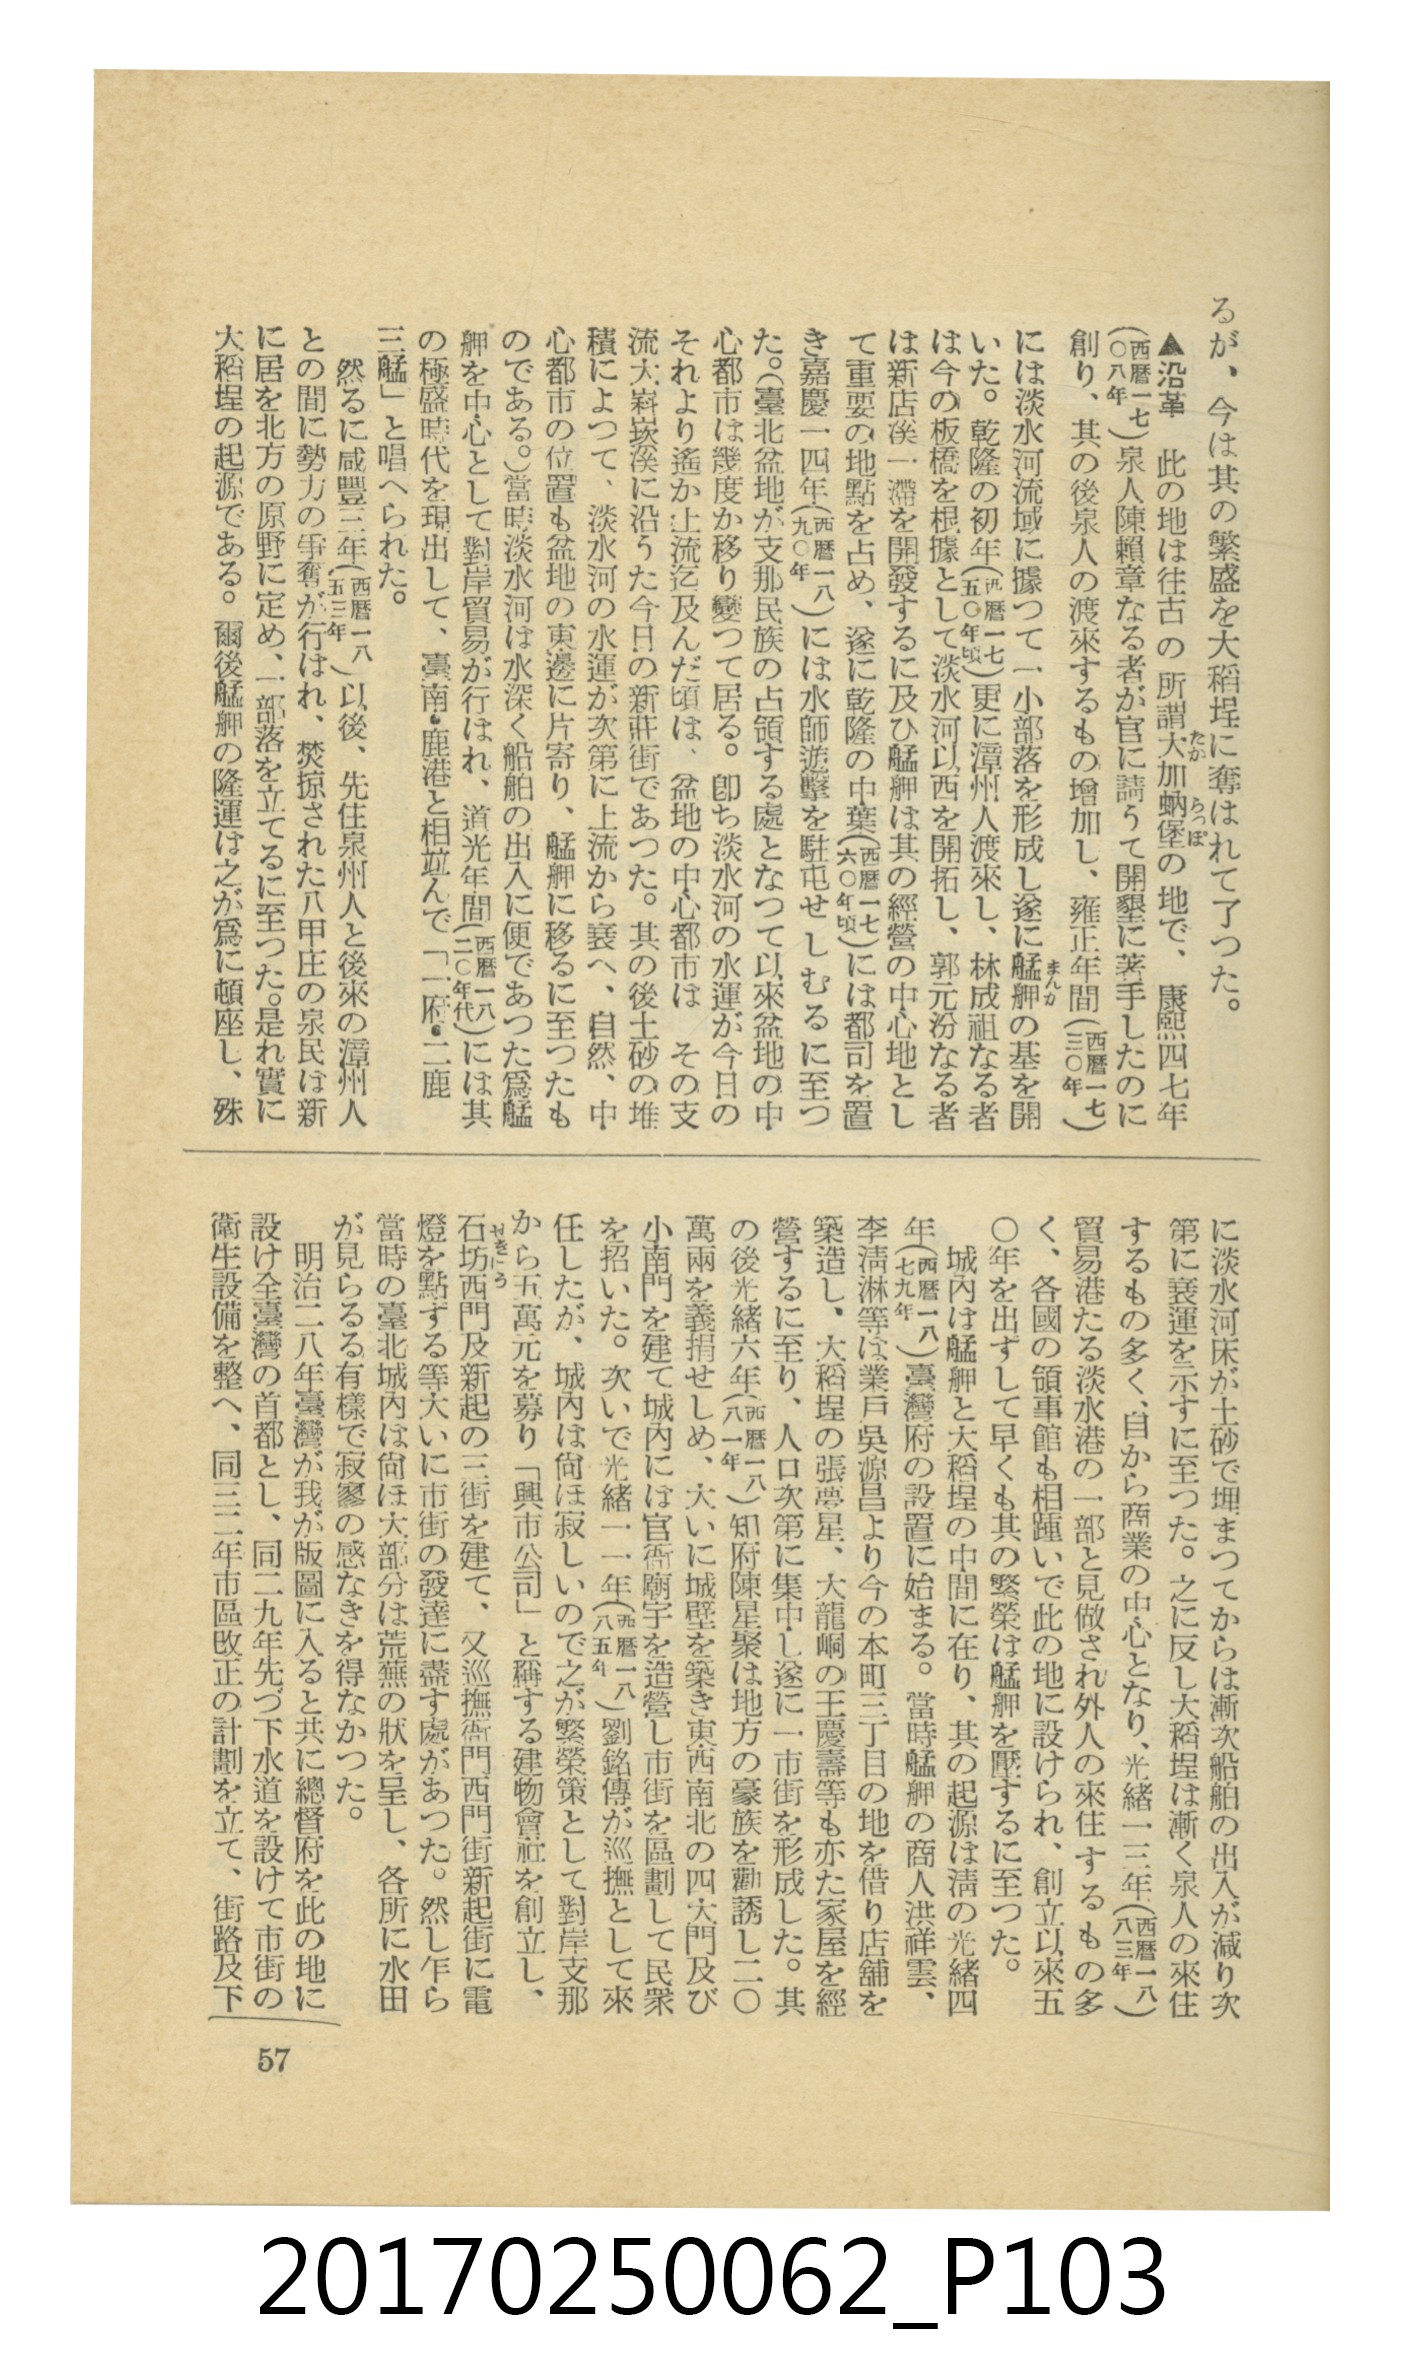 るが、今は其の繁盛を大稻埕に奪はれて了つた。
▲沿革　此の地は往古の所謂大加蚋堡の地で、康熙四七年
(西曆一七〇八年)泉人陳賴章なる者が官に請うて開墾に著手したのに
創り、其の後泉人の渡來するもの增加し、雍正年間(西曆一七三〇年)
には淡水河流域に據つて一小部落を形成し遂に艋舺の基を開
いた。乾隆の初年(西曆一七五〇年頃)更に漳州人渡來し、林成祖なる者
は今の板橋を根據として淡水河以西を開拓し、郭元汾なる者
は新店溪一滯を開發するに及ひ艋舺は其の經營の中心地とし
て重要の地點を占め、遂に乾隆の中葉(西曆一七六〇年頃)には都司を置
き嘉慶一四年(西曆一八九〇年)には水師遊擊を駐屯せしむるに至つ
た。(臺北盆地が支那民族の占領する處となつて以來盆地の中
心都市は幾度か移り變つて居る。卽ち淡水河の水運が今日の
それより遙か上流迄及んだ頃は、盆地の中心都市は　その支
流大嵙崁溪に沿うた今日の新莊街であつた。其の後土砂の堆
積によつて、淡水河の水運が次第に上流から衰へ、自然、中
心都市の位置も盆地の東邊に片寄り、艋舺に移るに至つたも
のである。)當時淡水河は水深く船舶の出入に便であつた爲艋
舺を中心として對岸貿易が行はれ、道光年間(西曆一八二〇年代)には其
の極盛時代を現出して、臺南・鹿港と相竝んで「一府・二鹿
三艋」と唱へられた。
然るに咸豐三年(西曆一八五三年)以後、先住泉州人と後來の漳州人
との間に勢力の爭奪が行はれ、焚掠された八甲庄の泉民は新
に居を北方の原野に定め、一部落を立てるに至つた。是れ實に
大稻埕の起源である。爾後艋舺の隆運は之が爲に頓座し、殊
に淡水河床が土砂で埋まつてからは漸次船舶の出入が減り次
第に衰運を示すに至つた。之に反し大稻埕は漸く泉人の來住
するもの多く、自から商業の中心となり、光緖一三年(西曆一八八三年)
貿易港たる淡水港の一部と見做され外人の來住するもの多
く、各國の領事館も相踵いで此の地に設けられ、創立以來五
〇年を出ずして早くも其の繁榮は艋舺を壓するに至つた。
城內は艋舺と大稻埕の中間に在り、其の起源は淸の光緖四
年(西曆一八七九年)臺灣府の設置に始まる。當時艋舺の商人洪祥雲、
李淸淋等は業戶吳源昌より今の本町三丁目の地を借り店舖を
築造し、大稻埕の張夢星、大龍峒の王慶壽等も亦た家屋を經
營するに至り、人口次第に集中し遂に一市街を形成した。其
の後光緖六年(西曆一八八一年)知府陳星聚は地方の豪族を勸誘し二〇
萬兩を義捐せしめ、大いに城壁を築き東西南北の四大門及び
小南門を建て城內には官衙廟宇を造營し市街を區劃して民衆
を招いた。次いで光緖一一年(西曆一八八五年)劉銘傳が巡撫として來
任したが、城內は尙ほ寂しいので之が繁榮策として對岸支那
から五萬元を募り「興市公司」と稱する建物會社を創立し、
石坊西門及新起の三街を建て、又巡撫衙門西門街新起街に電
燈を點ずる等大いに市街の發達に盡す處があつた。然し乍ら
當時の臺北城內は尙ほ大部分は荒蕪の狀を呈し、各所に水田
が見らるる有樣で寂寥の感なきを得なかつた。
明治二八年臺灣が我が版圖に入ると共に總督府を此の地に
設け全臺灣の首都とし、同二九年先づ下水道を設けて市街の
衞生設備を整へ、同三二年市區改正の計劃を立て、街路及下
57
20170250062_P103